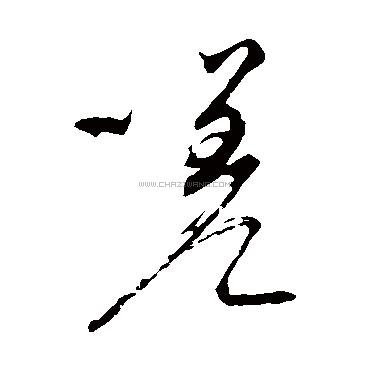 嗟
WWW.CHAZIWANG.COM